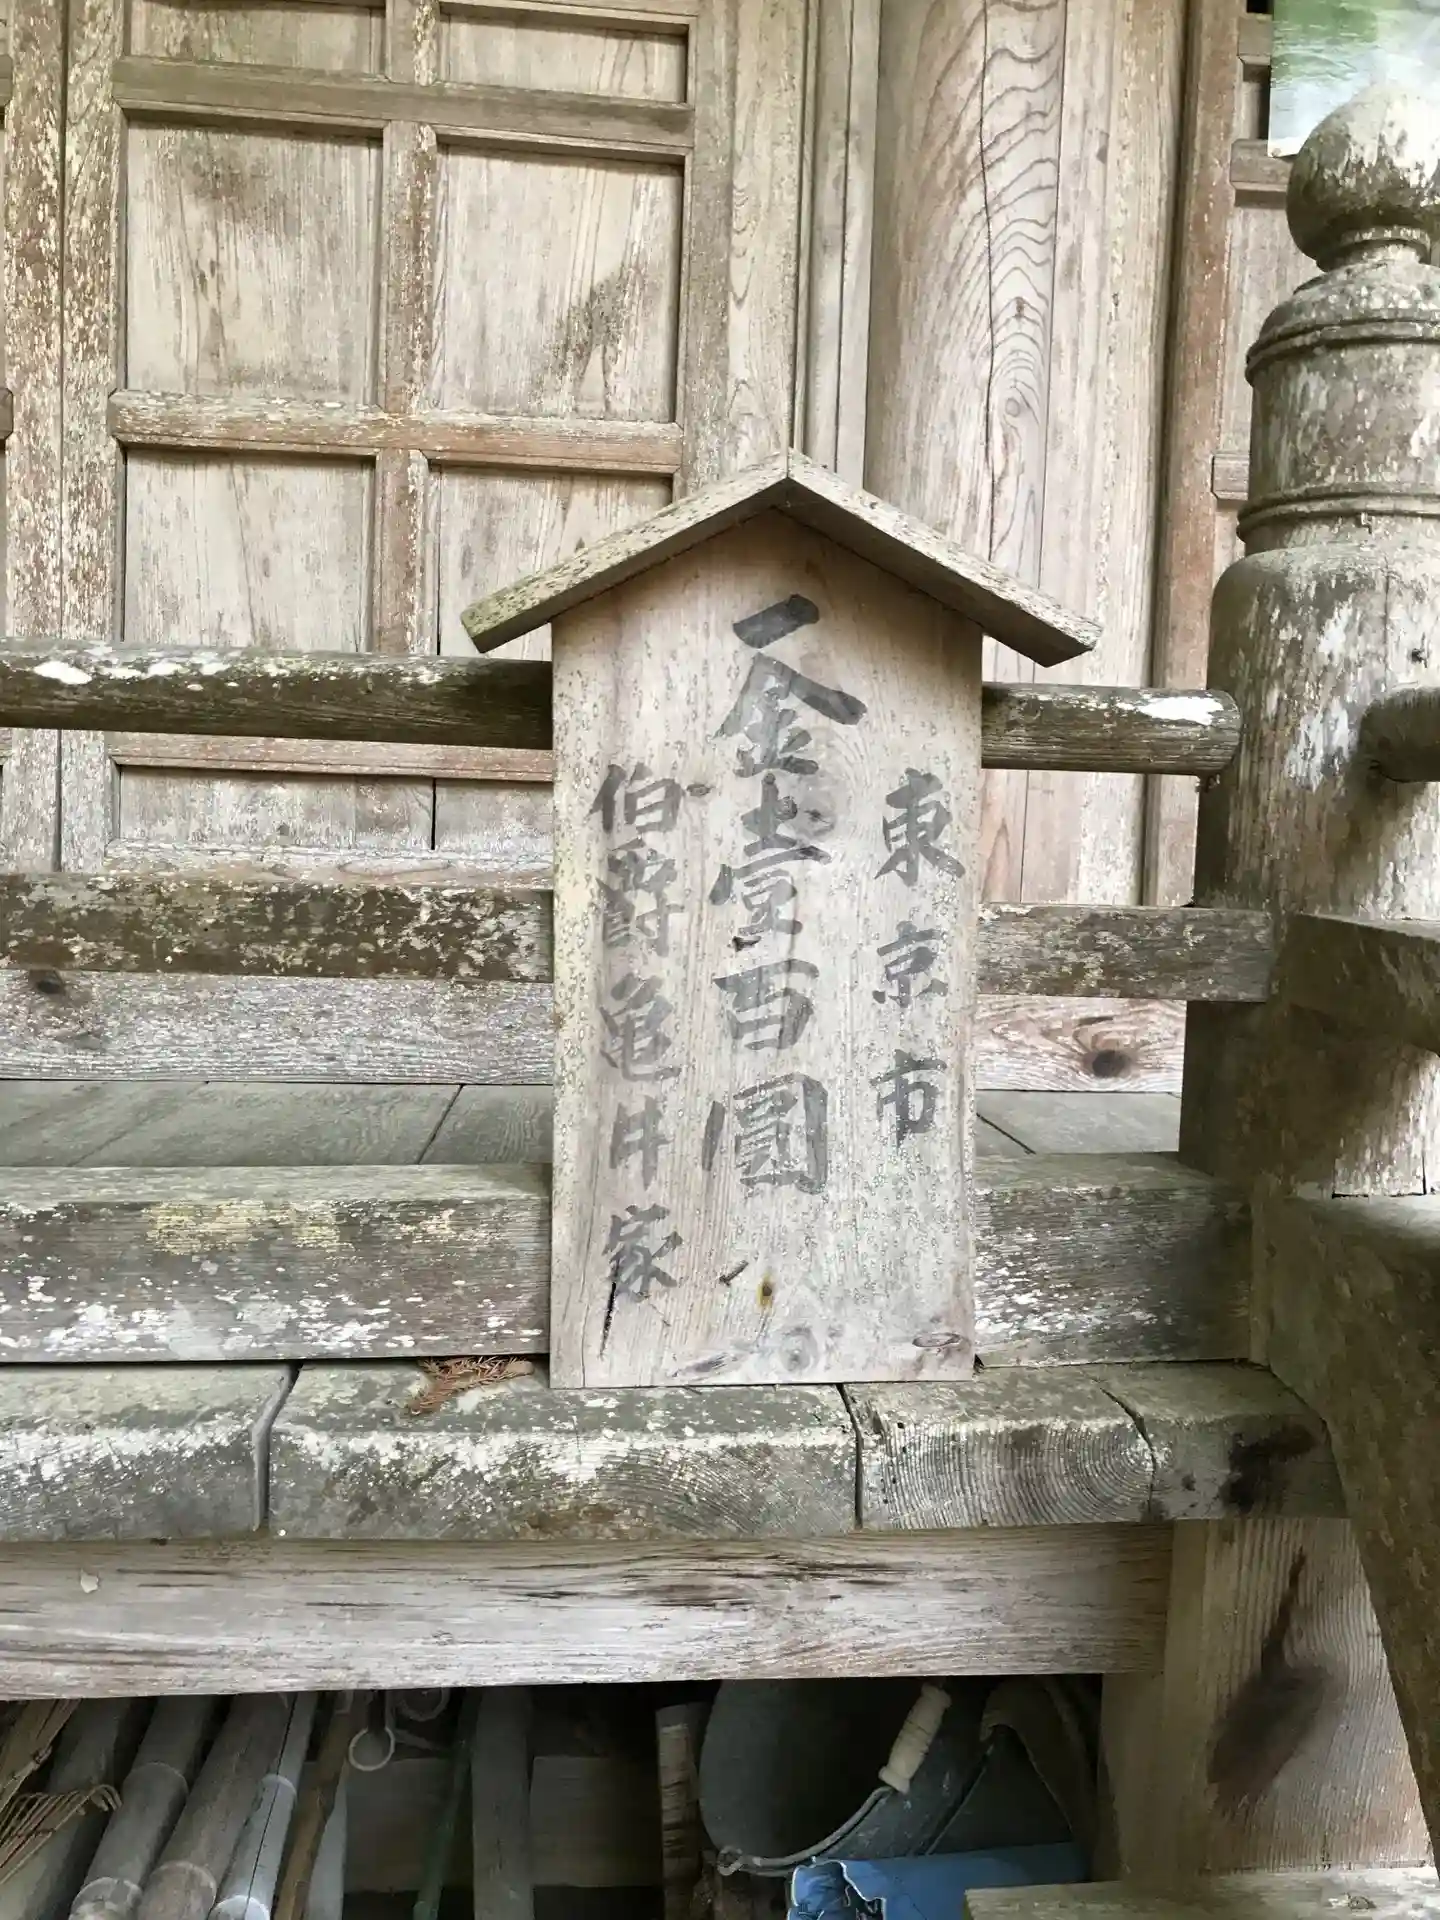 東京市
一金壹百圓
伯爵亀井家